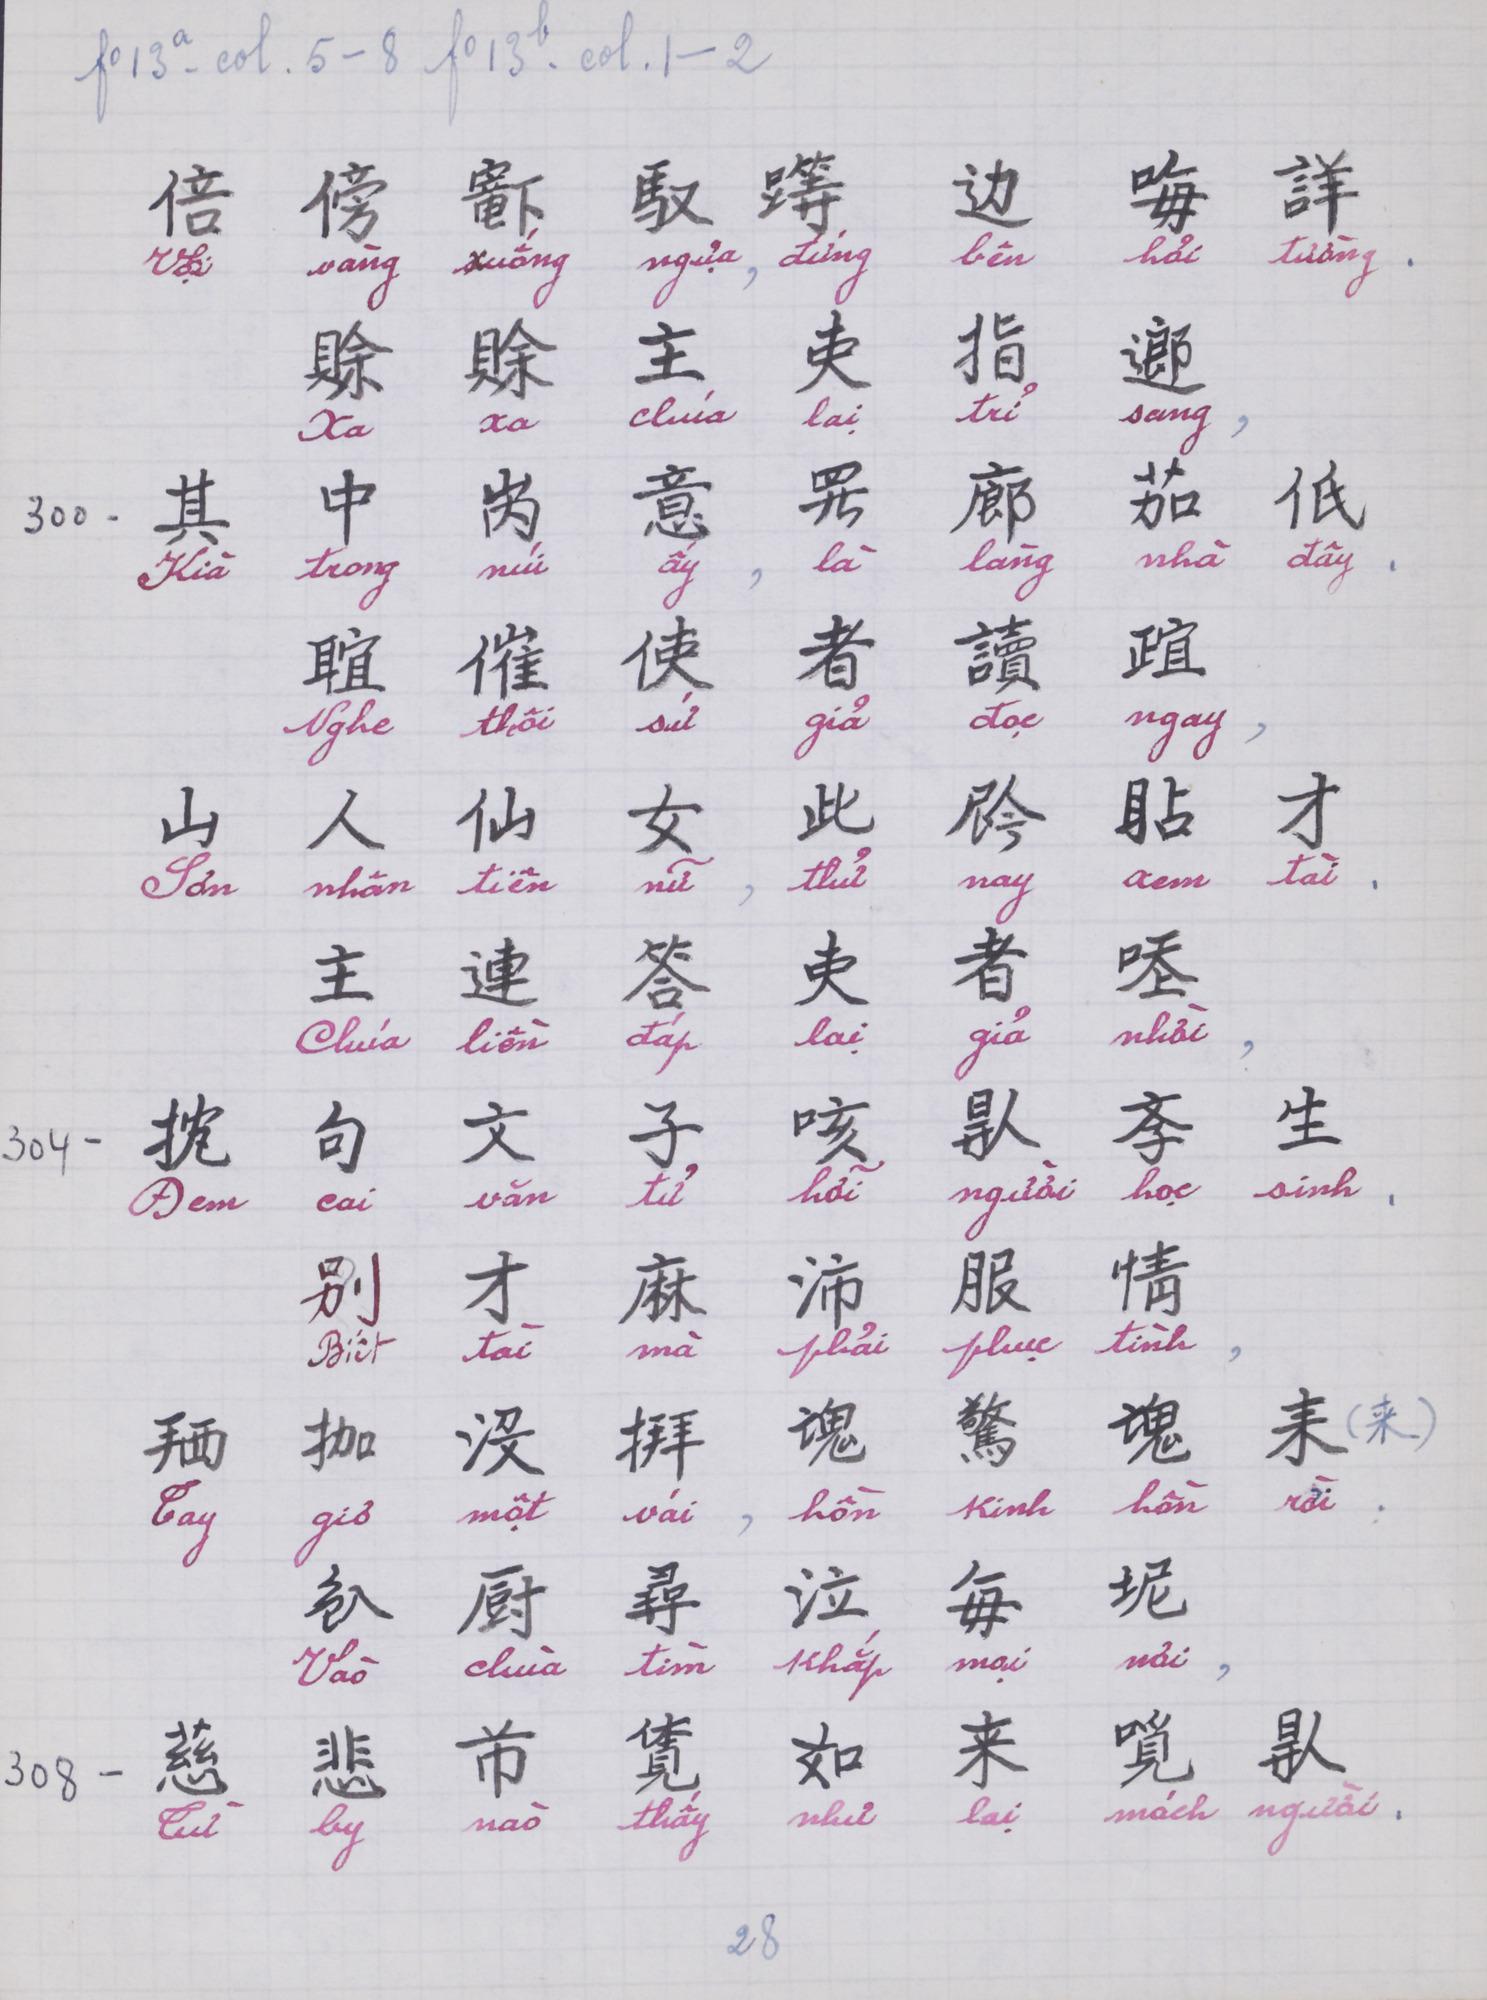 fo 13a - col. 5-8 fo 13b - col. 1-2
倍 傍 馭 边 晦 詳
Vội vàng xuống ngựa, đứng bên hỏi tường.
賒 賒 主 吏 指
Xa xa chúa lại trỏ sang,
300 - 其 中 意 廊 茹 低
Kià trong núi ấy, là làng nhà đây.
催 使 者 讀
Nghe thôi sứ giả đọc ngay,
山 人 仙 女 此 貼 才
Sơn nhân tiên nữ, thử nay xem tài.
主 連 答 吏 者
Chúa liền đáp lại giả nhời,
304 - 句 文 子 咳 斈 生
Đem cai văn tử hỡi người học sinh.
别 才 麻 沛 服 情
Biết tài mà phải phục tình,
拁 没 拜 塊 驚 塊 耒 (来)
Tay giơ một vái, hồn kinh hồn rời.
厨 尋 泣 每 坭
Vào chùa tìm khắp mọi nơi,
308 - 慈 悲 如 来
Từ by nào thấy như lại mách người.
28